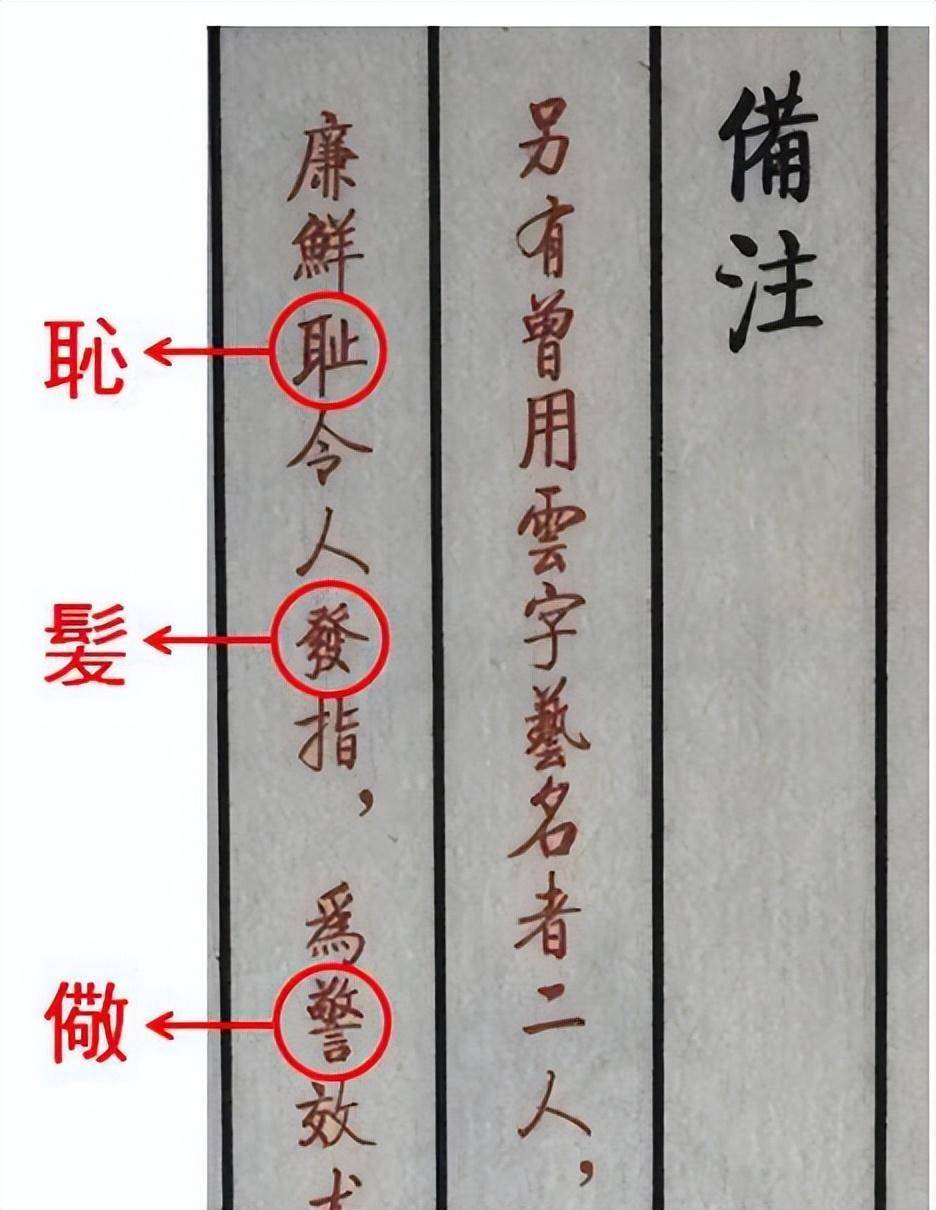 備注
另有曾用雲字藝名者二人，
廉鮮耻令人發指，爲警效
恥
髪
儆